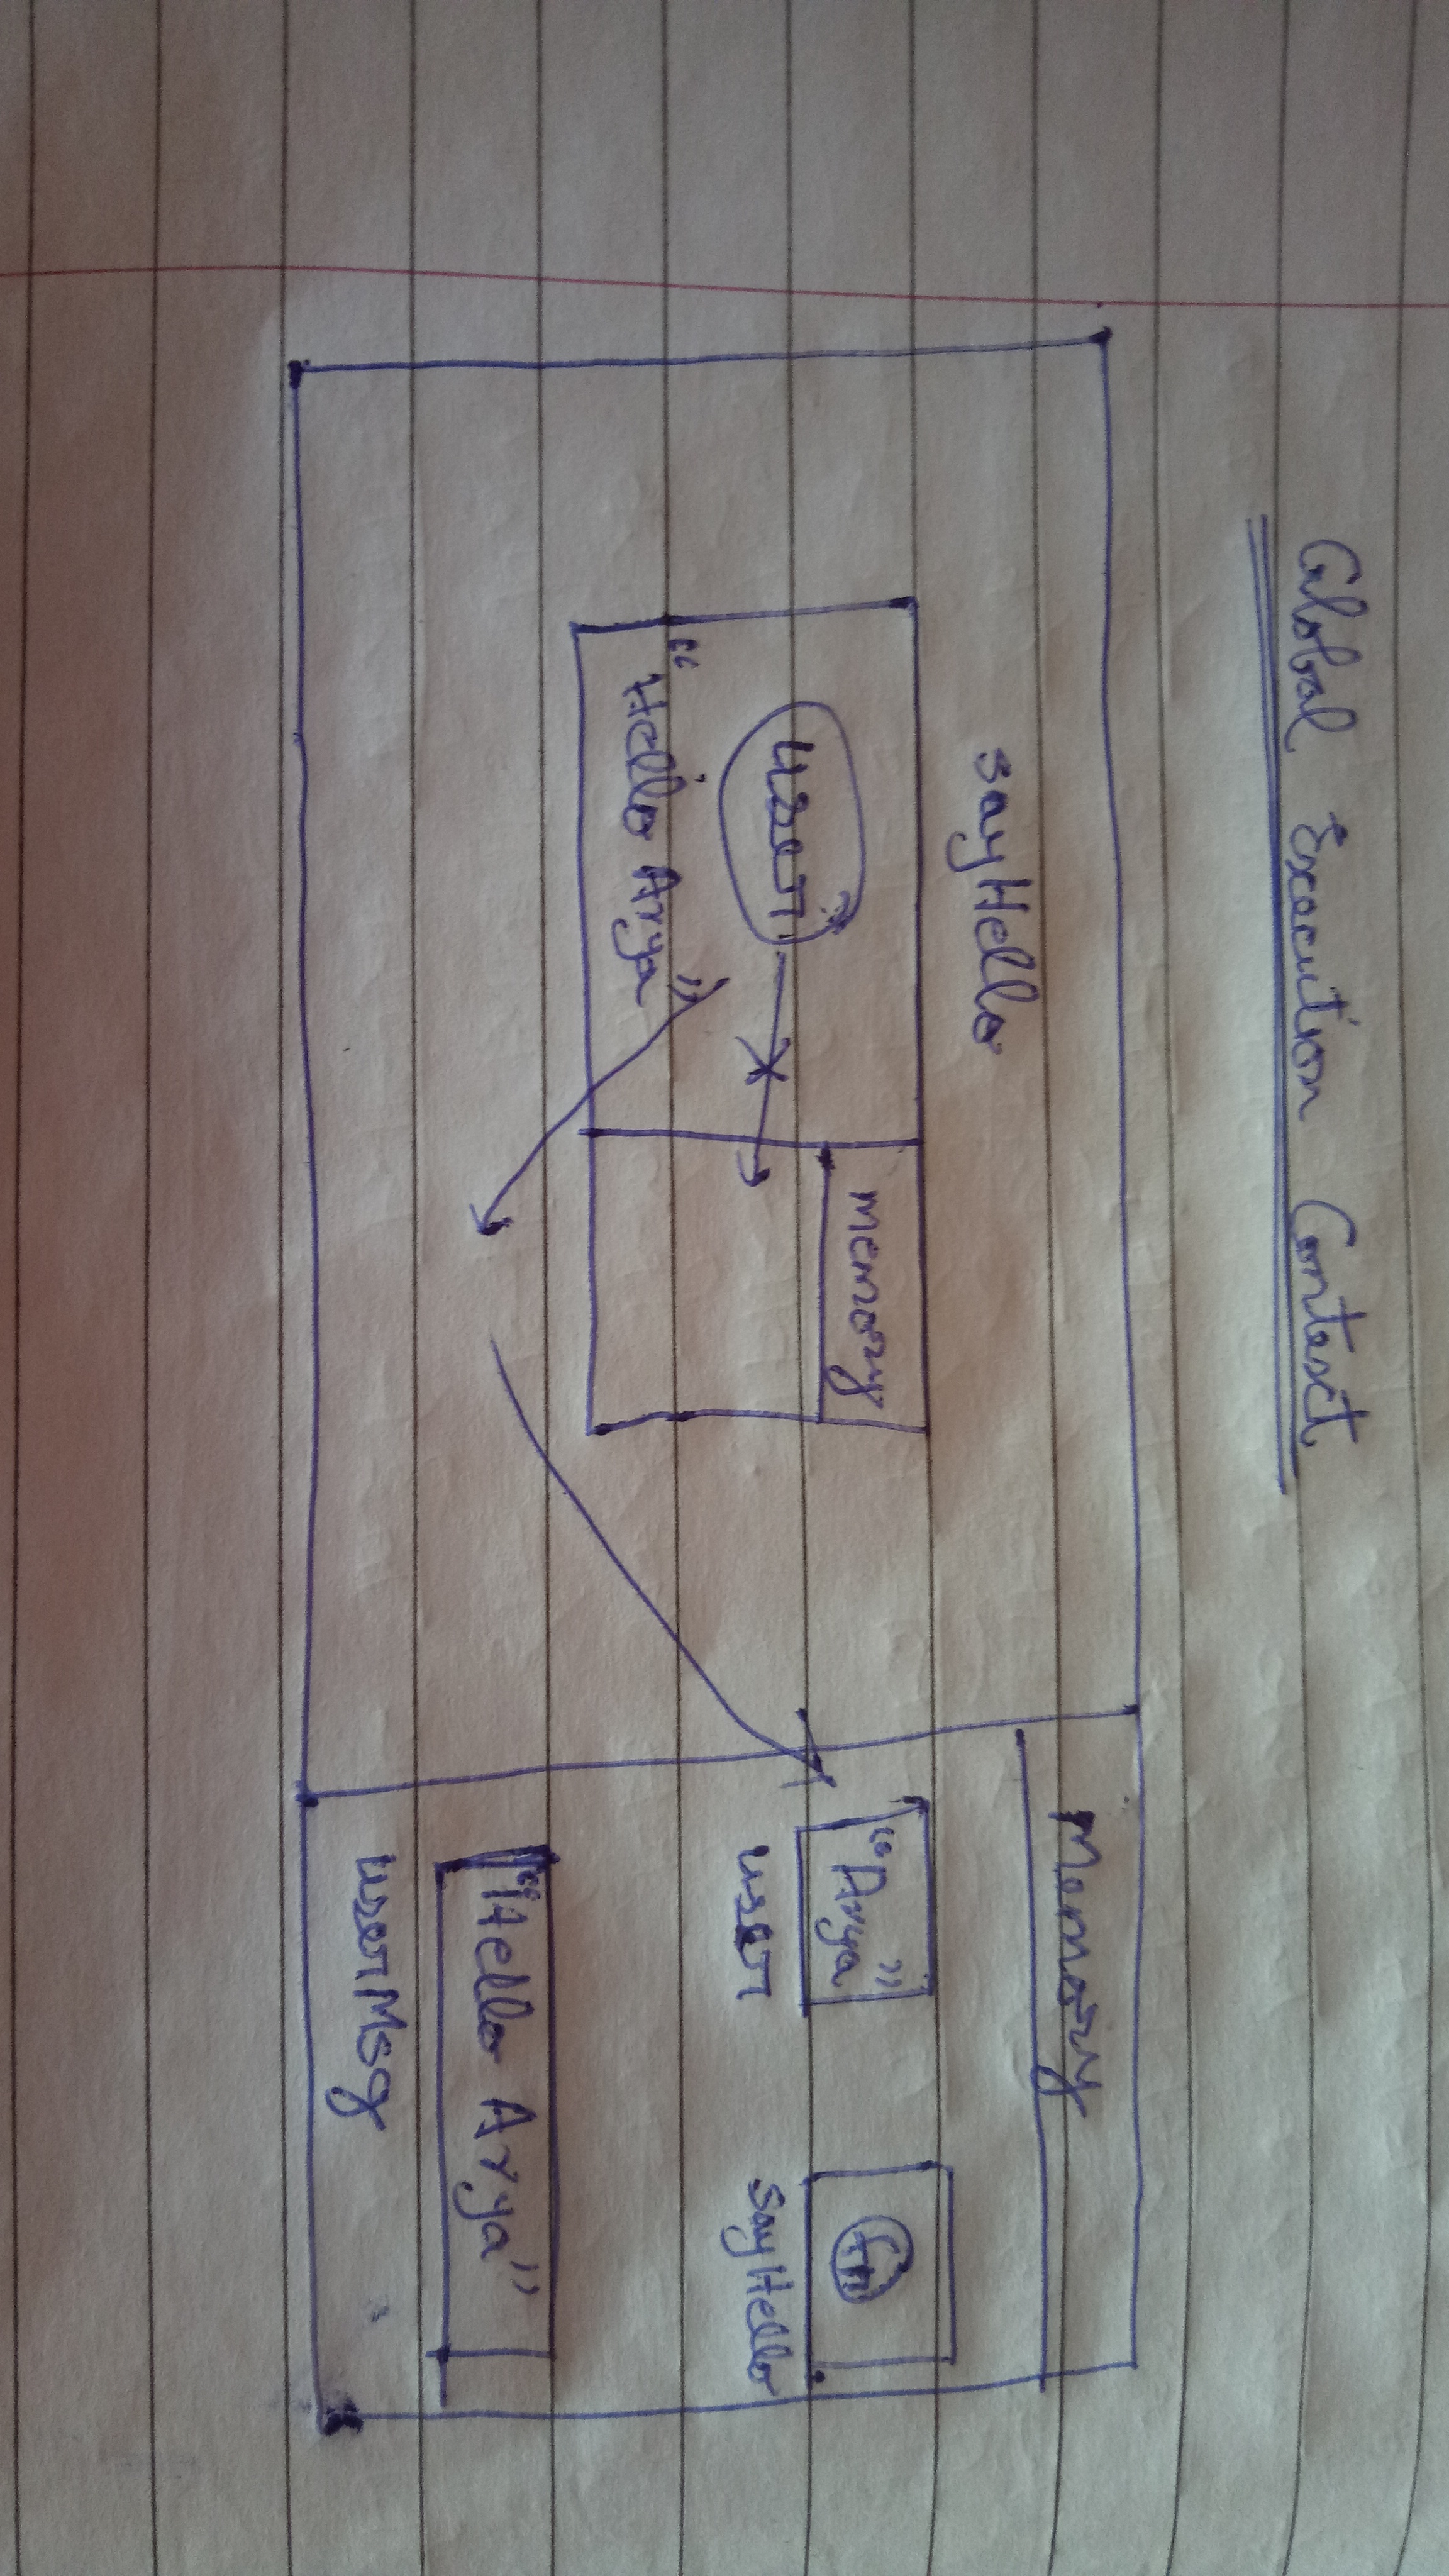 Global Execution Context
Memory
sayHello
memory
user
"Hello Arya"
"Arya"
user
fn
sayHello
"Hello Arya"
userMsg